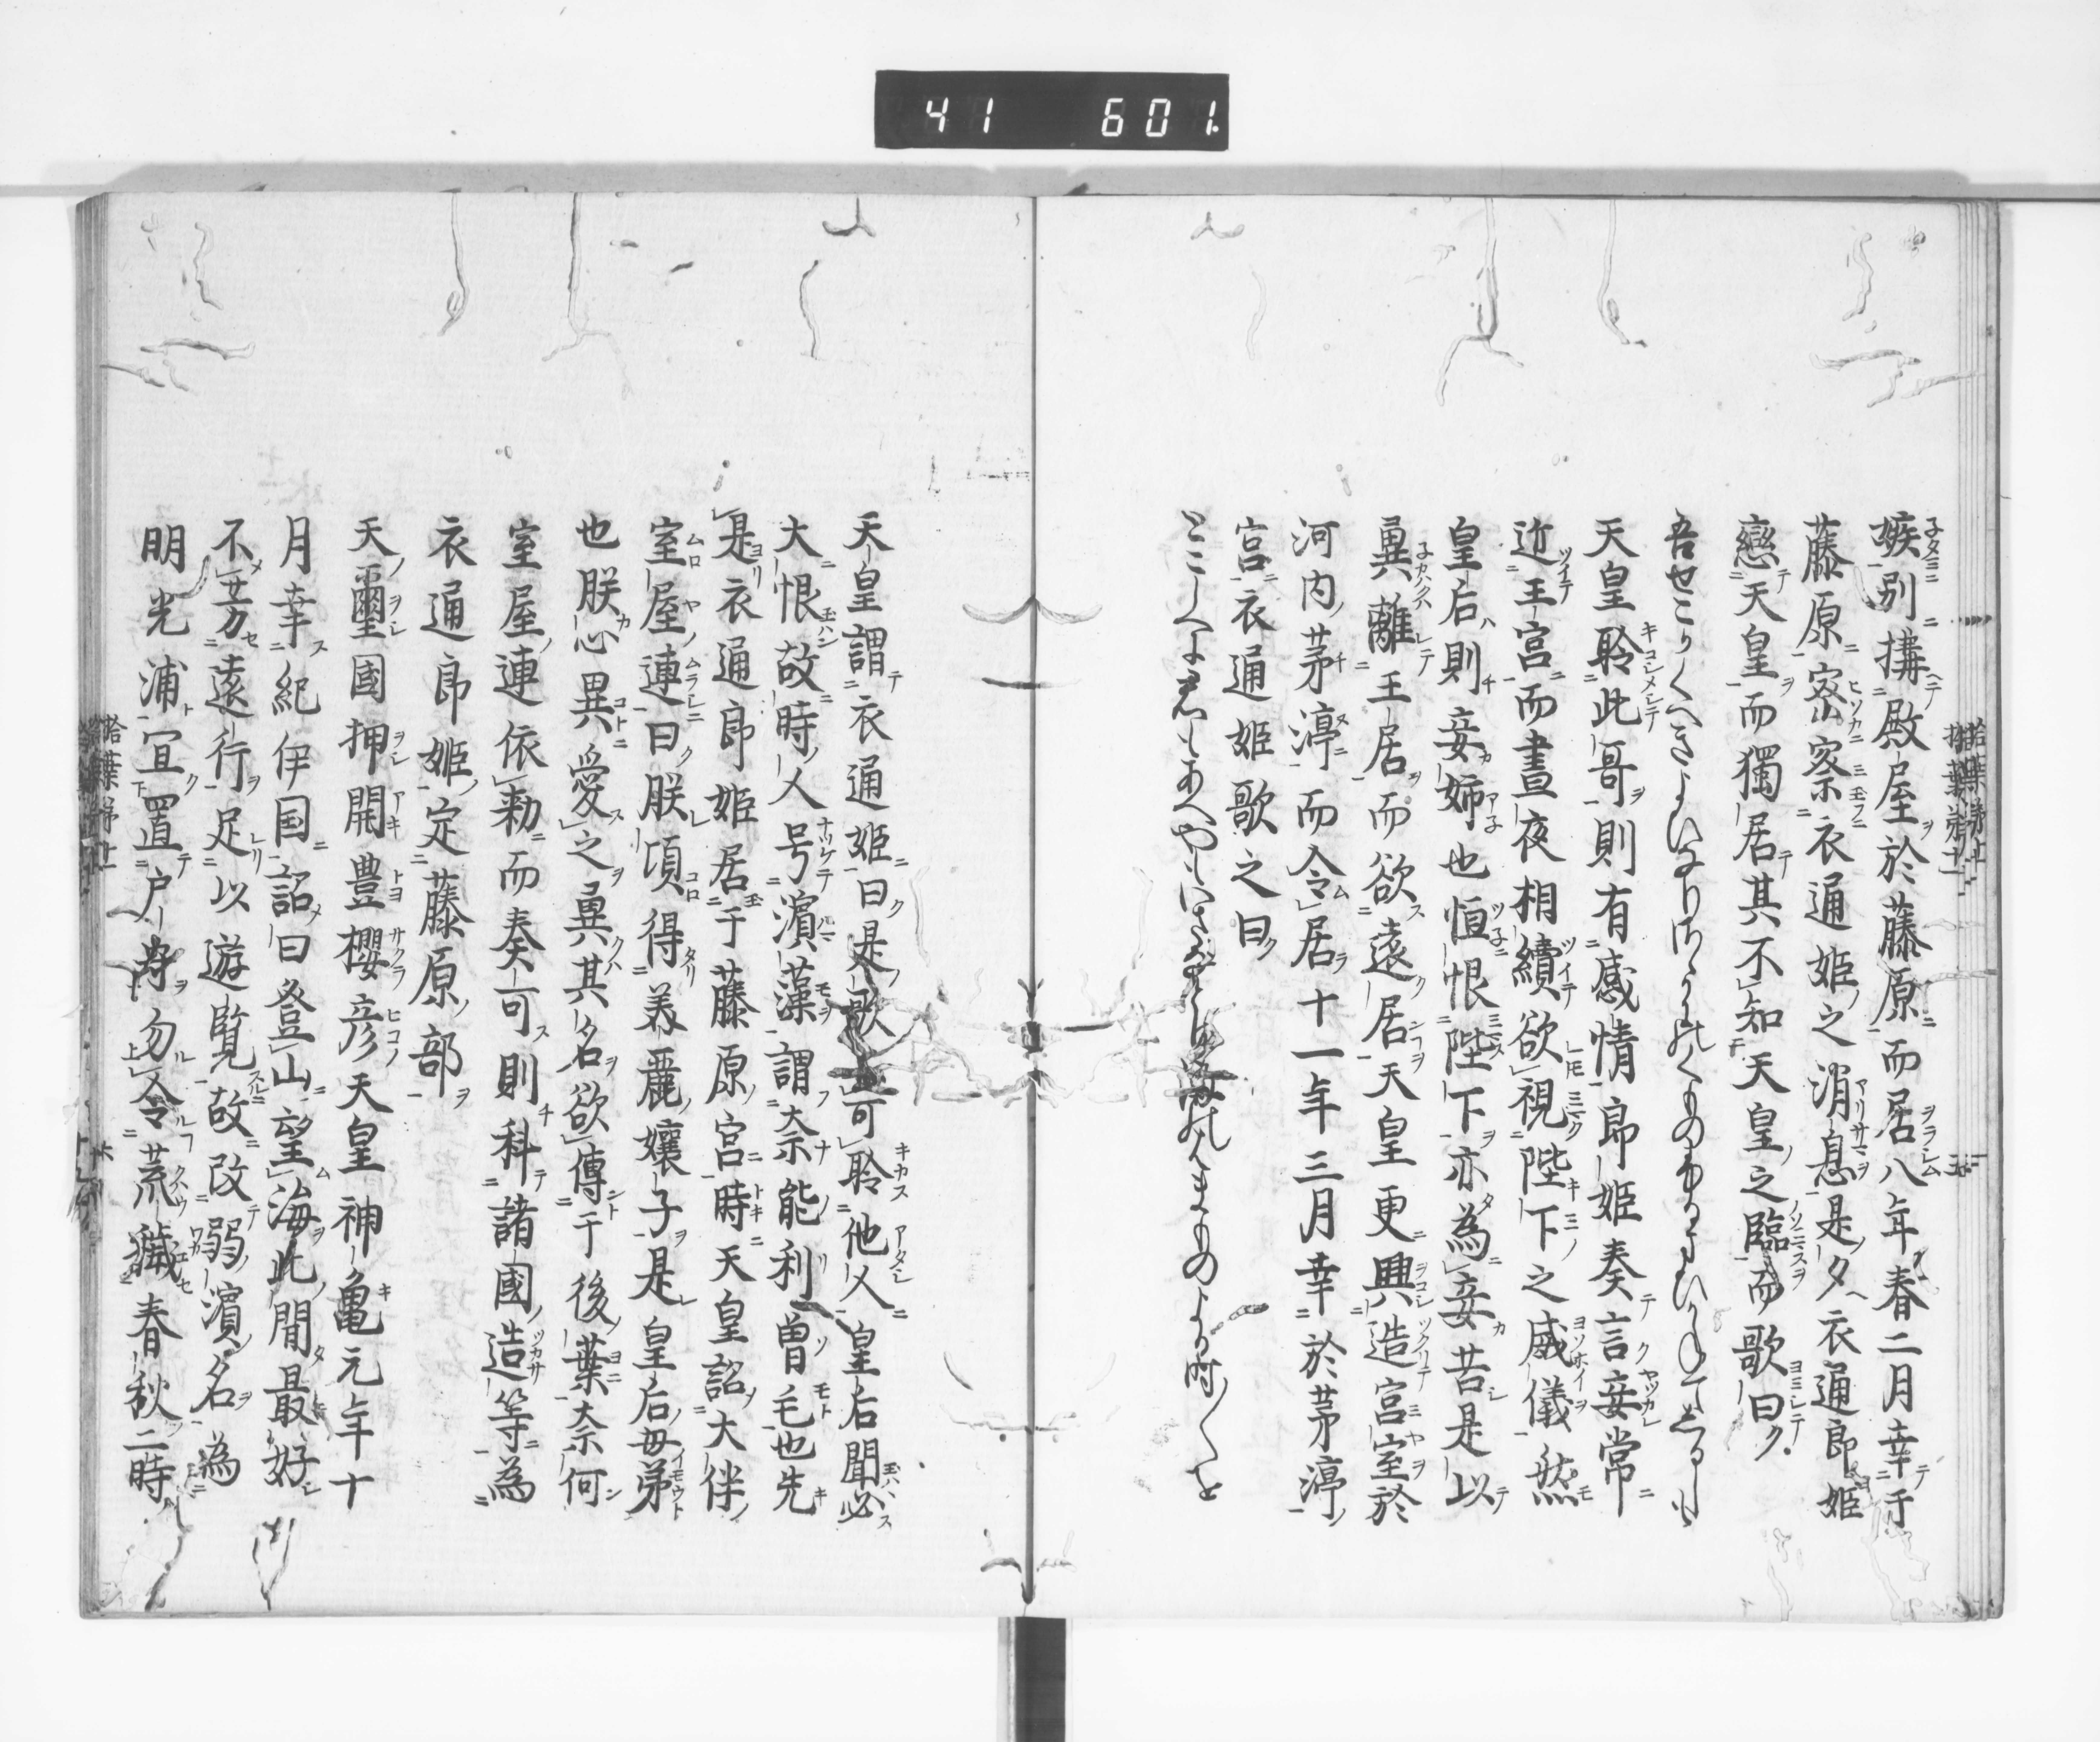 41 601
嫉別搆殿屋於藤原而居八年春二月幸于
藤原密察衣通姫之消息是夕衣通郎姫
戀天皇而獨居其不知天皇之臨而歌曰
吾せこかくへきよひなりさゝかにのくものふるまひかねてしるしも
天皇聆此哥則有感情郎姫奏言妾常
近王宮而晝夜相續欲視陛下之威儀然
皇后則妾姉也恒恨陛下亦為妾苦是以
異離王居而欲遠居天皇更興造宮室於
河内茅渟而令居十一年三月幸於茅渟
宮衣通姫歌之曰
とこしへに君もあへやもいさなとり海のはまものよる時〱を
天皇謂衣通姫曰是歌不可聆他人皇后聞必
大恨故時人号濱藻謂奈能利曽毛也先
是衣通郎姫居于藤原宮時天皇詔大伴
室屋連曰朕頃得美麗孃子是皇后母弟
也朕心異愛之異其名欲傳于後葉奈何
室屋連依勅而奏可則科諸國造等為
衣通郎姫定藤原部
天璽國押開豊櫻彦天皇神亀元年十
月幸紀伊国詔曰登山望海此間最好
不労遠行足以遊覧故改弱濱名為
明光浦宜置戸勿令荒穢春秋二時
拾葉弟十一